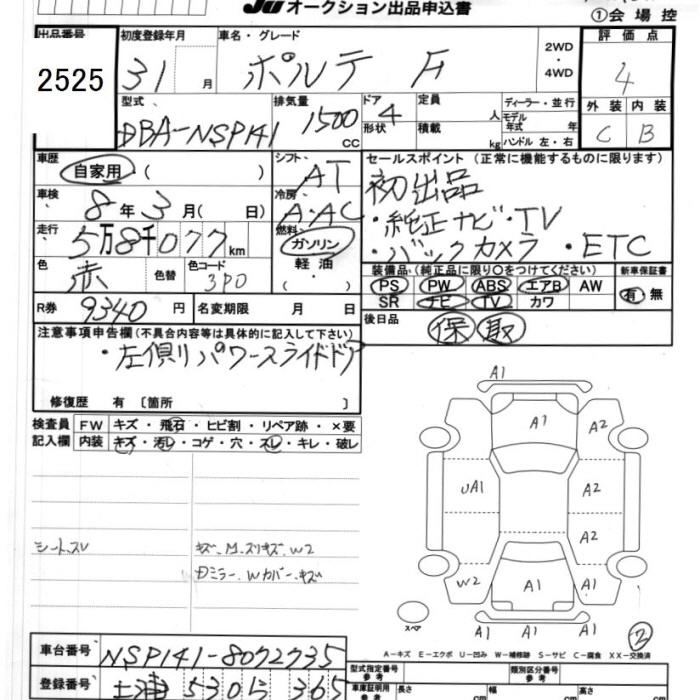 JU オークション出品申込書
①会場控
出品番号 初度登録年月 車名・グレード 2WD ・ 4WD 評価点
2525 31 月 ポルテ F 4
型式 排気量 ドア 定員 ディーラー・並行 外装 内装
DBA-NSP141 1500 cc 4 人 モデル年式 年 C B
形状 積載 kg ハンドル 左・右
車歴 シフト セールスポイント (正常に機能するものに限ります)
自家用 ( ) AT 初出品
車検 冷房 ・純正ナビ・TV
8年 3月 ( 日) A・AC ・バックカメラ ・ETC
走行 燃料
5万8千077km ガソリン
色 色替 色コード 軽油 装備品 (純正品に限り○をつけてください) 新車保証書
赤 3P0 ( ・ ) PS PW ABS エアB AW 有・無
R券 9340円 名変期限 月 日 SR ナビ TV カワ
注意事項申告欄 (不具合内容等は具体的に記入して下さい) 後日品 保 取
・左側リパワースライドドア
修復歴 有 〔箇所 〕
検査員 FW キズ・飛石・ヒビ割・リペア跡・×要
記入欄 内装 キズ・汚レ・コゲ・穴・スレ・キレ・破レ
A1
A1 A2
UA1 A2
A2
シート.スレ キズ.M.スリキズ.W2
Dミラー.Wカバー.キズ
W2 A1 A1
スペア A1 A1 A1 ②
A-キズ E-エクボ U-凹み W-補修跡 S-サビ C-腐食 XX-交換済
車台番号 NSP141-8072735
型式指定番号 参考 類別区分番号 参考
登録番号 土浦 530 ら 365
車庫証明用 参考 長さ cm 幅 cm 高さ cm